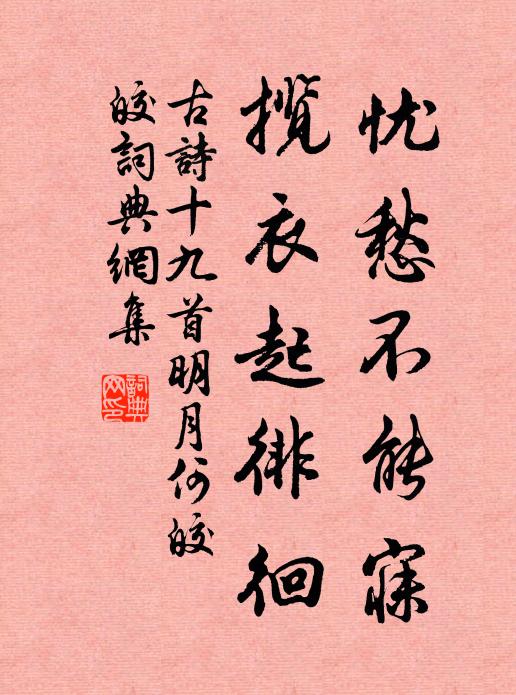 忧愁不能寐
揽衣起徘徊
古詩十九首明月何皎
皎詞典網集
詞典网印